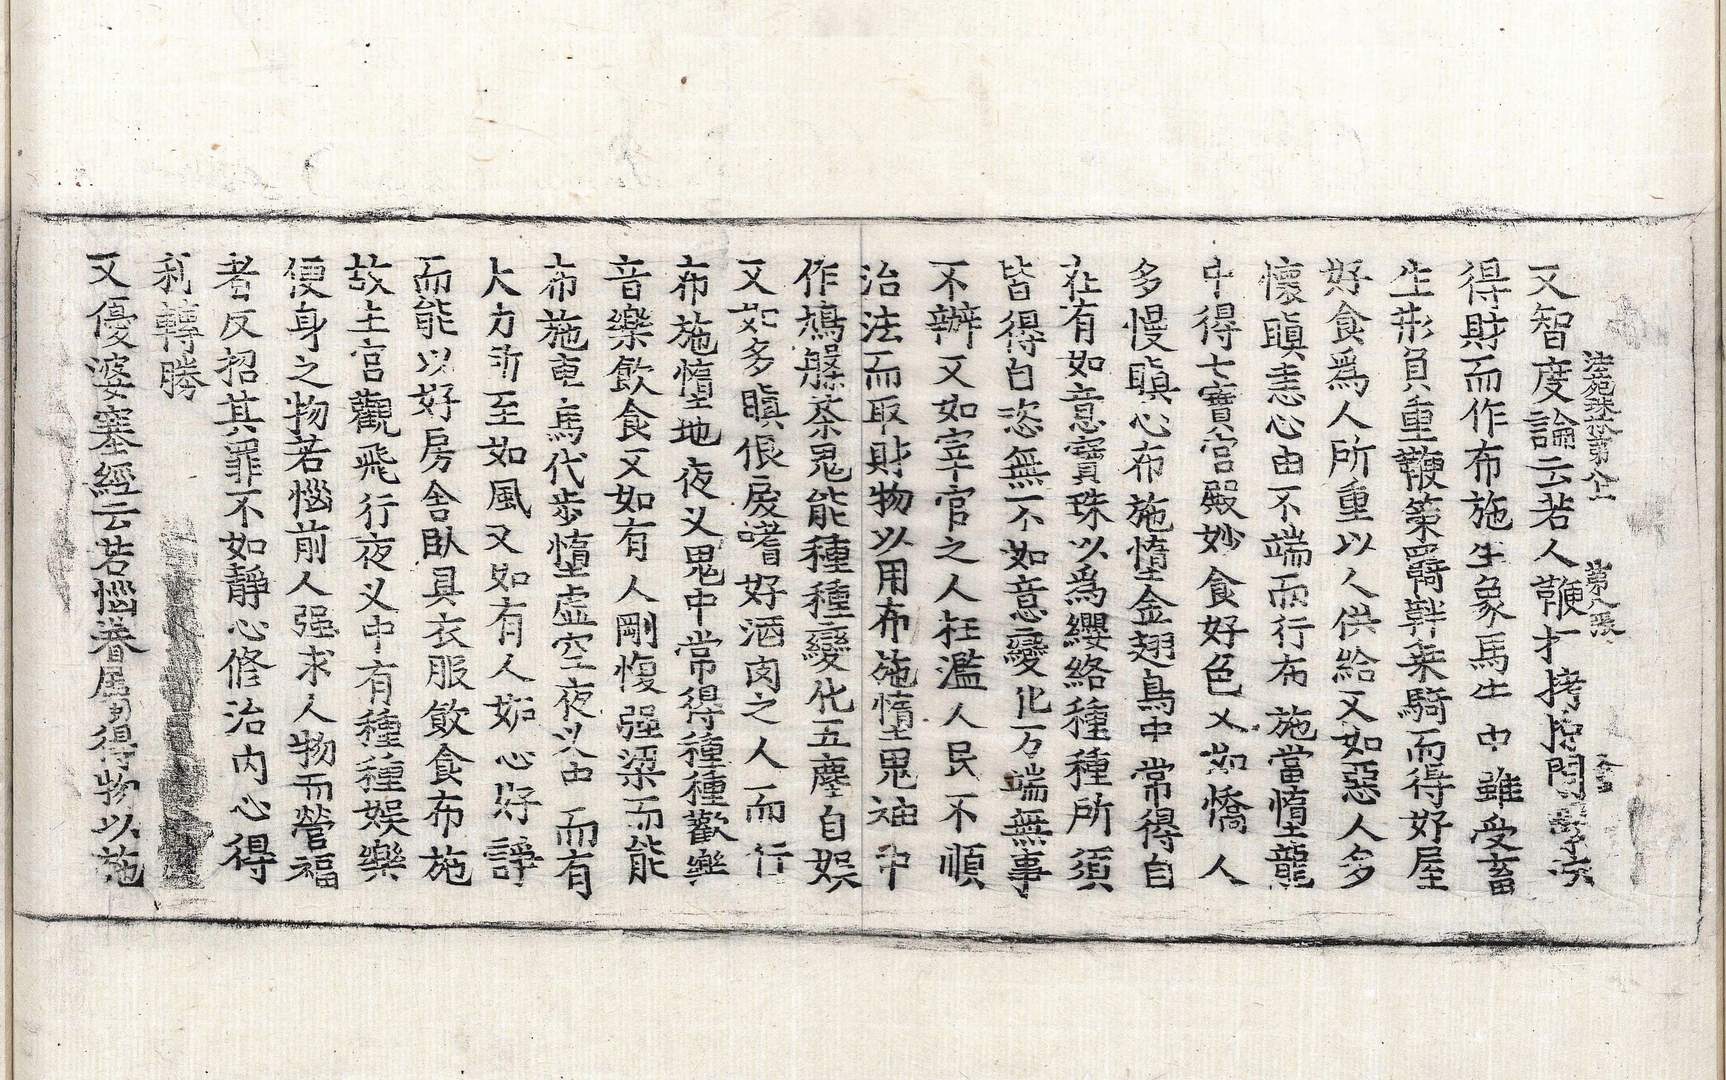 又智度論云若人鞭打拷掠閉繫法
得財而作布施生象馬牛中雖受畜
生形負重鞭策羇靽乘騎而得好屋
好食爲人所重以人供給又如惡人多
懷瞋恚心曲不端而行布施當墮龍
中得七寶宮殿妙食好色又如憍人
多慢瞋心布施墮金翅鳥中常得自
在有如意寶珠以爲纓絡種種所須
皆得自恣無不如意變化万端無事
不辦又如宰官之人枉濫人民不順
治法而取財物以用布施墮鬼神中
作鳩槃茶鬼能種種變化五塵自娛
又如多瞋佷戾嗜好酒肉之人而行
布施墮地夜叉鬼中常得種種歡樂
音樂飲食又如有人剛愎强梁而能
布施車馬代步墮虛空夜叉中而有
大力所至如風又如有人妬心好諍
而能以好房舍臥具衣服飲食布施
故生宮觀飛行夜叉中有種種娛樂
便身之物若惱前人强求人物而營福
者反招其罪不如靜心修治內心得
利轉勝
又優婆塞經云若惱眷屬得物以施